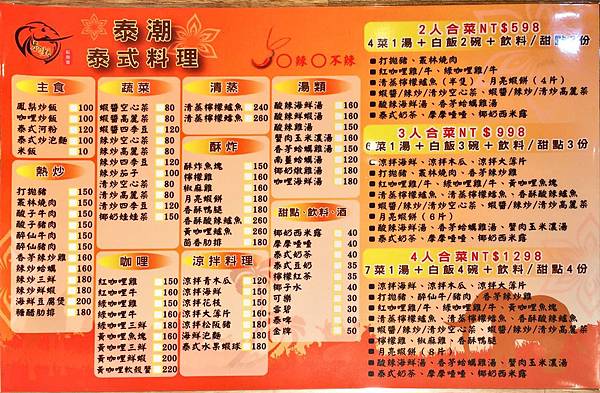 泰潮
泰式料理
辣 不辣
主食
鳳梨炒飯 100
咖哩炒飯 100
泰式河粉 120
泰式炒泡麵 100
米飯 10
熱炒
打拋豬 150
叢林燒肉 150
酸子牛肉 150
酸子豬肉 150
醉仙牛肉 150
醉仙豬肉 150
香茅辣炒雞 150
辣炒蛤蠣 150
辣炒三鮮 180
辣炒蝦 180
海鮮豆腐煲 200
糖醋肋排 180
蔬菜
蝦醬空心菜 80
蝦醬高麗菜 80
蝦醬四季豆 120
辣炒空心菜 80
辣炒高麗菜 80
辣炒四季豆 120
辣炒茄子 100
清炒空心菜 80
清炒高麗菜 80
清炒四季豆 120
椰奶娃娃菜 150
咖哩
紅咖哩雞 150
紅咖哩牛 160
綠咖哩雞 150
綠咖哩牛 160
紅咖哩三鮮 180
黃咖哩魚塊 200
黃咖哩三鮮 200
黃咖哩鮮蝦 200
黃咖哩軟殼蟹 220
清蒸
清蒸檸檬鱸魚 240
清蒸檸檬鱸魚 260
酥炸
酥炸魚塊 150
檸檬雞 160
椒麻雞 160
月亮蝦餅 260
香酥鴨腿 180
香酥酸辣鱸魚 260
黃咖哩鱸魚 260
茴香肋排 180
涼拌料理
涼拌青木瓜 120
涼拌海鮮 180
涼拌花枝 150
涼拌大薄片 150
涼拌松阪豬 180
海鮮泡麵 180
泰式水果蝦球 180
湯類
酸辣海鮮湯 160
酸辣鮮蝦湯 160
酸辣雞湯 150
蟹肉玉米濃湯 150
香茅蛤蠣雞湯 150
南薑蛤蠣湯 120
椰奶嫩雞湯 180
咖哩海鮮湯 180
甜點、飲料、酒
椰奶西米露 50
摩摩喳喳 50
泰式奶茶 35
泰式豆奶 35
檸檬紅茶 35
椰子水 40
可樂 30
雪碧 30
泰啤 60
金牌 50
2人合菜NT$598
4菜1湯+白飯2碗+飲料/甜點2份
打拋豬、叢林燒肉
紅咖哩雞/牛、綠咖哩雞/牛
清蒸檸檬鱸魚(半隻)、月亮蝦餅(4片)
蝦醬/辣炒/清炒空心菜、蝦醬/辣炒/清炒高麗菜
酸辣海鮮湯、香茅蛤蠣雞湯
泰式奶茶、摩摩喳喳、椰奶西米露
3人合菜NT$998
6菜1湯+白飯3碗+飲料/甜點3份
涼拌海鮮、涼拌木瓜、涼拌大薄片
打拋豬、叢林燒肉、香茅辣炒雞
紅咖哩雞/牛、綠咖哩雞/牛、黃咖哩魚塊
清蒸檸檬鱸魚、清蒸檸檬鱸魚、香酥酸辣鱸魚
蝦醬/辣炒/清炒空心菜、蝦醬/辣炒/清炒高麗菜
月亮蝦餅(6片)
酸辣海鮮湯、香茅蛤蠣雞湯、蟹肉玉米濃湯
泰式奶茶、摩摩喳喳、椰奶西米露
4人合菜NT$1298
7菜1湯+白飯4碗+飲料/甜點4份
涼拌海鮮、涼拌木瓜、涼拌大薄片
打拋豬、醉仙牛/豬肉、香茅辣炒雞
紅咖哩雞/牛、綠咖哩雞/牛、黃咖哩魚塊
清蒸檸檬鱸魚、清蒸檸檬鱸魚、香酥酸辣鱸魚
蝦醬/辣炒/清炒空心菜、蝦醬/辣炒/清炒高麗菜
檸檬雞、椒麻雞、香酥鴨腿
月亮蝦餅(8片)
酸辣海鮮湯、香茅蛤蠣雞湯、蟹肉玉米濃湯
泰式奶茶、摩摩喳喳、椰奶西米露